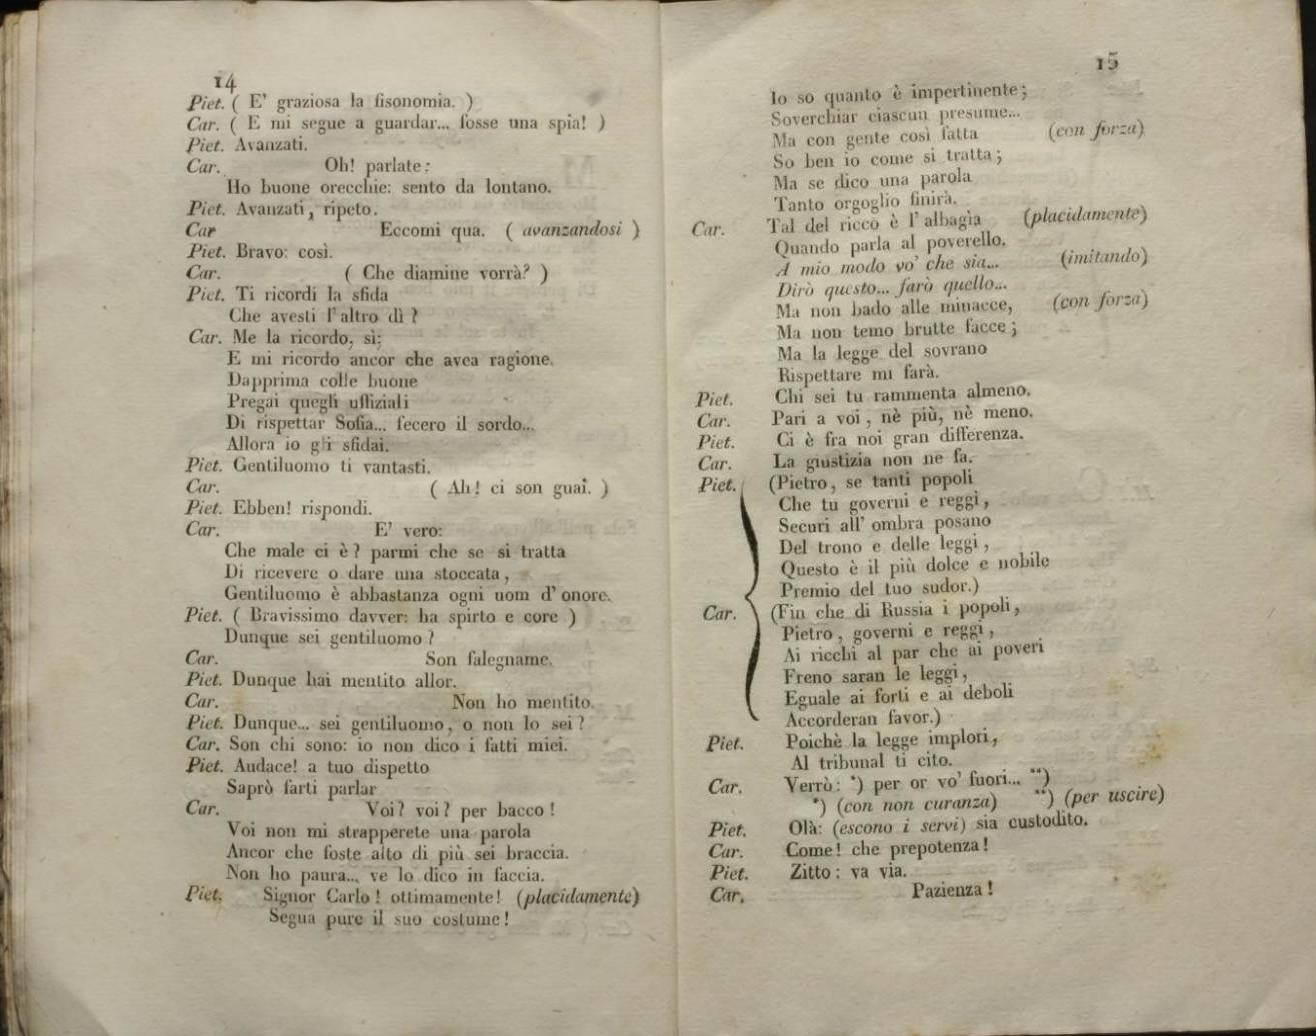 14
Piet. ( E' graziosa la fisonomia. )
Car. ( E mi segue a guardar... fosse una spia! )
Piet. Avanzati.
Car. Oh! parlate:
Ho buone orecchie: sento da lontano.
Piet. Avanzati, ripeto.
Car Eccomi qua. ( avanzandosi )
Piet. Bravo: così.
Car. ( Che diamine vorrà? )
Piet. Ti ricordi la sfida
Che avesti l'altro dì?
Car. Me la ricordo, sì;
E mi ricordo ancor che avea ragione.
Dapprima colle buone
Pregai quegli uffiziali
Di rispettar Sofia... fecero il sordo...
Allora io gli sfidai.
Piet. Gentiluomo ti vantasti.
Car. ( Ah! ci son guai. )
Piet. Ebben! rispondi.
Car. E' vero:
Che male ci è? parmi che se si tratta
Di ricevere o dare una stoccata,
Gentiluomo è abbastanza ogni uom d'onore.
Piet. ( Bravissimo davver: ha spirto e core )
Dunque sei gentiluomo?
Car. Son falegname.
Piet. Dunque hai mentito allor.
Car. Non ho mentito.
Piet. Dunque... sei gentiluomo, o non lo sei?
Car. Son chi sono: io non dico i fatti miei.
Piet. Audace! a tuo dispetto
Saprò farti parlar
Car. Voi? voi? per bacco!
Voi non mi strapperete una parola
Ancor che foste alto di più sei braccia.
Non ho paura... ve lo dico in faccia.
Piet. Signor Carlo! ottimamente! (placidamente)
Segua pure il suo costume!
15
Io so quanto è impertinente;
Soverchiar ciascun presume...
Ma con gente così fatta (con forza)
So ben io come si tratta;
Ma se dico una parola
Tanto orgoglio finirà.
Car. Tal del ricco è l'albagìa (placidamente)
Quando parla al poverello.
A mio modo vo' che sia... (imitando)
Dirò questo... farò quello...
Ma non bado alle minacce, (con forza)
Ma non temo brutte facce;
Ma la legge del sovrano
Rispettare mi farà.
Piet. Chi sei tu rammenta almeno.
Car. Pari a voi, nè più, nè meno.
Piet. Ci è fra noi gran differenza.
Car. La giustizia non ne fa.
Piet. (Pietro, se tanti popoli
Che tu governi e reggi,
Securi all'ombra posano
Del trono e delle leggi,
Questo è il più dolce e nobile
Premio del tuo sudor.)
Car. (Fin che di Russia i popoli,
Pietro, governi e reggi,
Ai ricchi al par che ai poveri
Freno saran le leggi,
Eguale ai forti e ai deboli
Accorderan favor.)
Piet. Poichè la legge implori,
Al tribunal ti cito.
Car. Verrò: *) per or vo' fuori... **)
*) (con non curanza) **) (per uscire)
Piet. Olà: (escono i servi) sia custodito.
Car. Come! che prepotenza!
Piet. Zitto: va via.
Car. Pazienza!